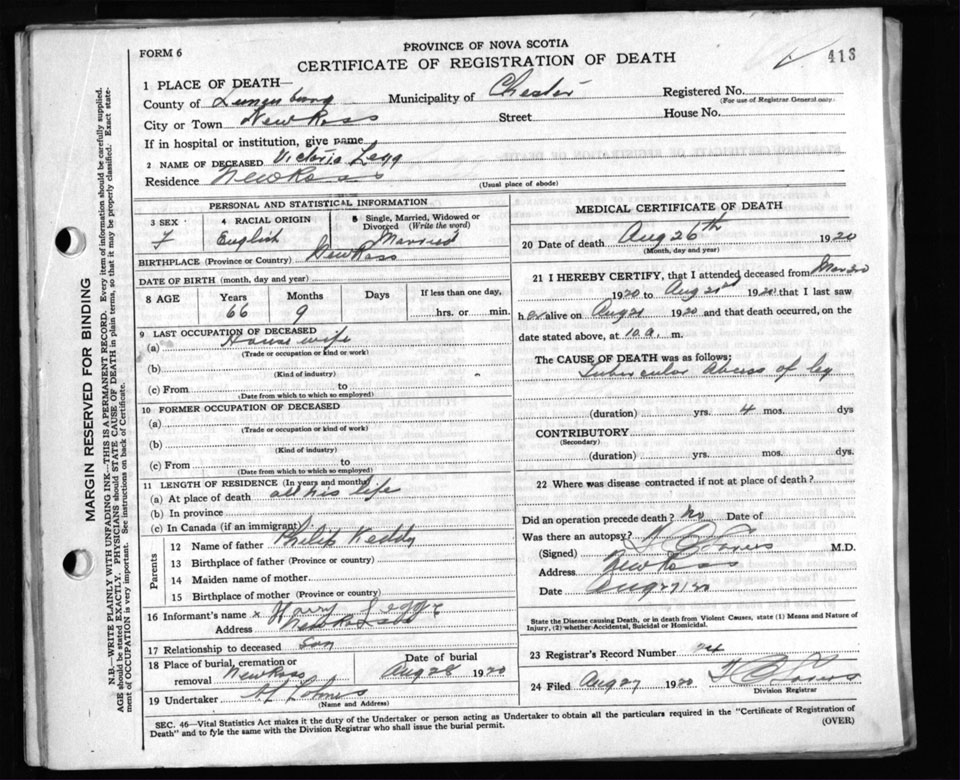 PROVINCE OF NOVA SCOTIA
FORM 6
CERTIFICATE OF REGISTRATION OF DEATH
413
1 PLACE OF DEATH—
County of Lunenburg Municipality of Chester Registered No.
(For use of Registrar General only)
City or Town New Ross Street House No.
If in hospital or institution, give name
2 NAME OF DECEASED Victoria Legg
Residence New Ross
(Usual place of abode)
PERSONAL AND STATISTICAL INFORMATION
3 SEX
f
4 RACIAL ORIGIN
English
5 Single, Married, Widowed or Divorced (Write the word)
Married
BIRTHPLACE (Province or Country) New Ross
DATE OF BIRTH (month, day and year)
8 AGE Years 66 Months 9 Days If less than one day, hrs. or min.
9 LAST OCCUPATION OF DECEASED
(a) House wife
(Trade or occupation or kind or work)
(b)
(Kind of industry)
(c) From to
(Date from which to which so employed)
10 FORMER OCCUPATION OF DECEASED
(a)
(Trade or occupation or kind of work)
(b)
(Kind of industry)
(c) From to
(Date from which to which so employed)
11 LENGTH OF RESIDENCE (In years and months)
(a) At place of death all his life
(b) In province
(c) In Canada (if an immigrant)
Parents
12 Name of father Philip Keddy
13 Birthplace of father (Province or country)
14 Maiden name of mother
15 Birthplace of mother (Province or country)
16 Informant's name x Harry Legge
Address New Ross
17 Relationship to deceased Son
18 Place of burial, cremation or removal New Ross
Date of burial Aug 28 1920
19 Undertaker
(Name and Address)
MEDICAL CERTIFICATE OF DEATH
20 Date of death Aug 26th 1920
(Month, day and year)
21 I HEREBY CERTIFY, that I attended deceased from
1920 to Aug 21st 1920 that I last saw
h er alive on Aug 21 1920 and that death occurred, on the
date stated above, at 10 a. m.
The CAUSE OF DEATH was as follows;
Tubercular Abcess of leg
(duration) yrs. 4 mos. dys
CONTRIBUTORY
(Secondary)
(duration) yrs. mos. dys.
22 Where was disease contracted if not at place of death?
Did an operation precede death? No Date of
Was there an autopsy?
(Signed) M.D.
Address New Ross
Date Aug 27/20
State the Disease causing Death, or in death from Violent Causes, state (1) Means and Nature of
Injury, (2) whether Accidental, Suicidal or Homicidal.
23 Registrar's Record Number
24 Filed Aug 27 1920
Division Registrar
SEC. 46—Vital Statistics Act makes it the duty of the Undertaker or person acting as Undertaker to obtain all the particulars required in the "Certificate of Registration of
Death" and to fyle the same with the Division Registrar who shall issue the burial permit.
(OVER)
MARGIN RESERVED FOR BINDING
N.B.—WRITE PLAINLY WITH UNFADING INK—THIS IS A PERMANENT RECORD. Every item of information should be carefully supplied.
AGE should be stated EXACTLY. PHYSICIANS should STATE CAUSE OF DEATH in plain terms, so that it may be properly classified. Exact state-
ment of OCCUPATION is very important. See instructions on back of Certificate.